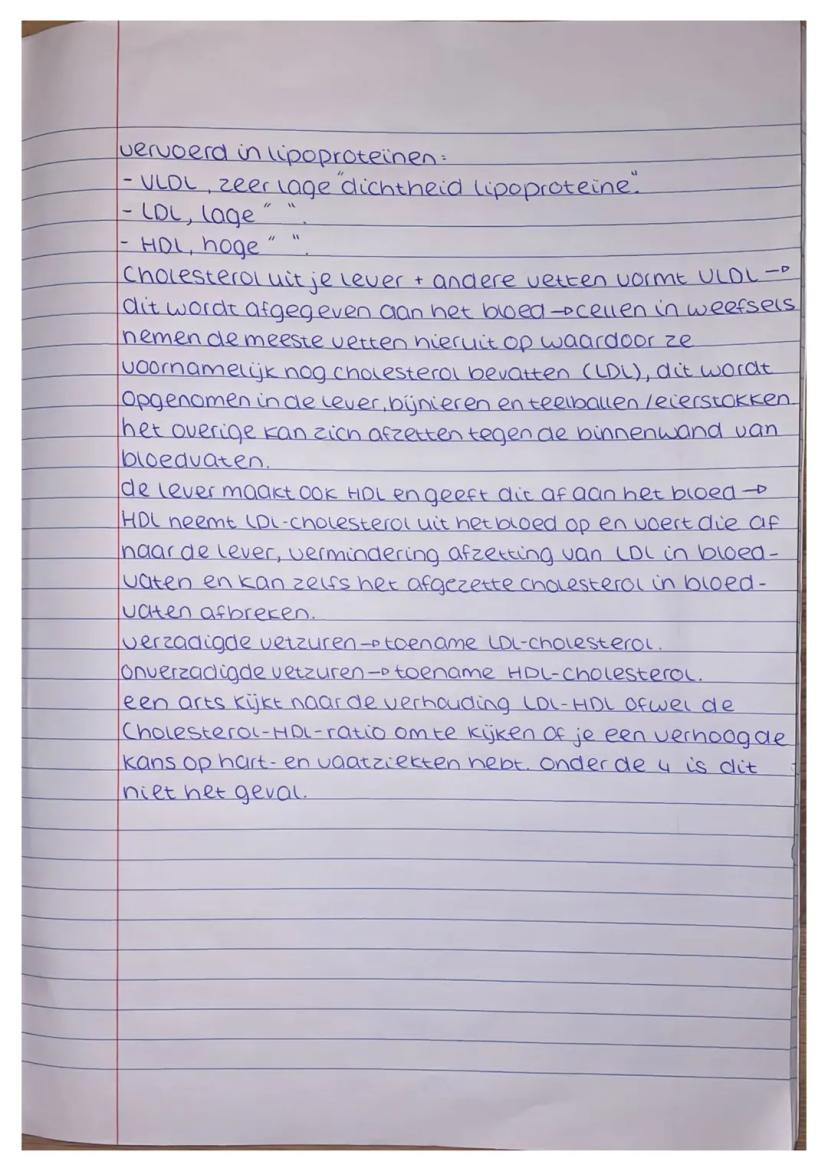 vervoerd in lipoproteïnen:
- VLDL, zeer lage "dichtheid lipoproteïne".
- LDL, lage " ".
- HDL, hoge " ".
Cholesterol uit je lever + andere vetten vormt VLDL →
dit wordt afgegeven aan het bloed → cellen in weefsels
nemen de meeste vetten hieruit op waardoor ze
voornamelijk nog cholesterol bevatten (LDL), dit wordt
opgenomen in de lever, bijnieren en teelballen/eierstokken
het overige kan zich afzetten tegen de binnenwand van
bloedvaten.
de lever maakt ook HDL en geeft dit af aan het bloed →
HDL neemt LDL-cholesterol uit het bloed op en voert die af
naar de lever, vermindering afzetting van LDL in bloed-
vaten en kan zelfs het afgezette cholesterol in bloed-
vaten afbreken.
verzadigde vetzuren → toename LDL-cholesterol.
onverzadigde vetzuren → toename HDL-cholesterol.
een arts kijkt naar de verhouding LDL-HDL ofwel de
Cholesterol-HDL-ratio om te kijken of je een verhoogde
kans op hart- en vaatziekten hebt. onder de 4 is dit
niet het geval.